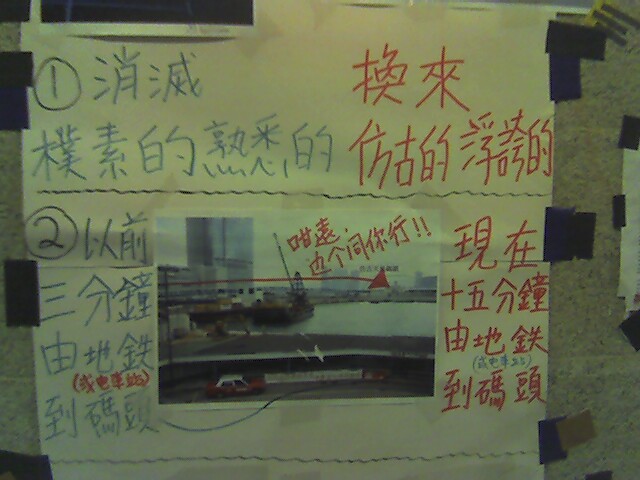 ① 消滅 換來
樸素的熟悉的 仿古的浮誇的
② 以前 現在
三分鐘 十五分鐘
由地鉄 由地鉄
(或电車站) (或电車站)
到碼頭 到碼頭
咁遠,
边个同你行!!